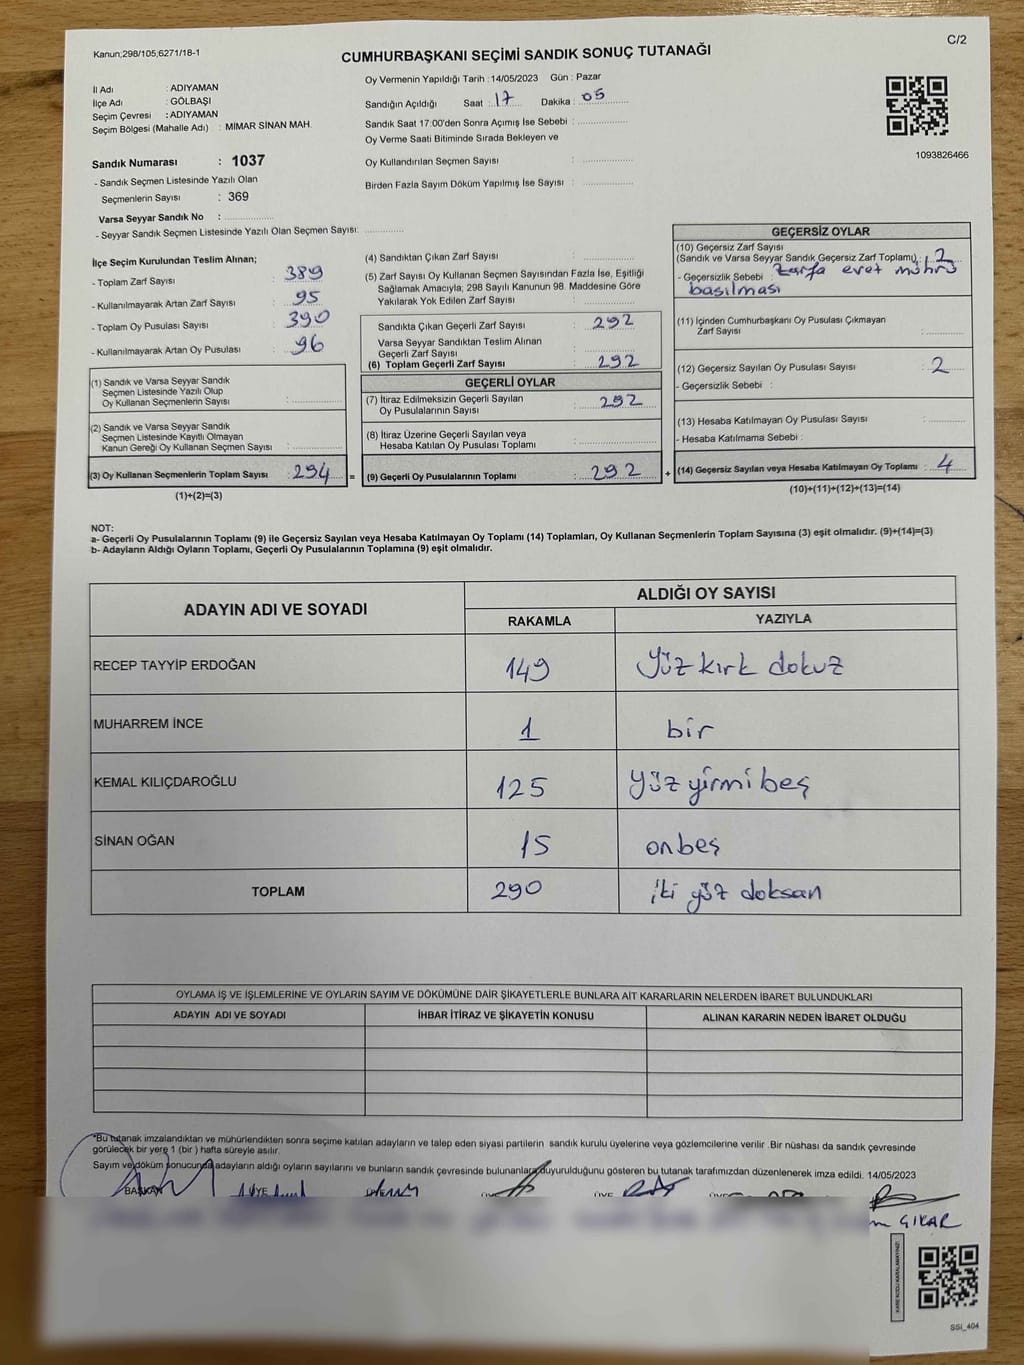 Kanun;298/105;6271/18-1
C/2
CUMHURBAŞKANI SEÇİMİ SANDIK SONUÇ TUTANAĞI
İl Adı : ADIYAMAN
İlçe Adı : GÖLBAŞI
Seçim Çevresi : ADIYAMAN
Seçim Bölgesi (Mahalle Adı) : MİMAR SİNAN MAH.
Sandık Numarası : 1037
- Sandık Seçmen Listesinde Yazılı Olan
Seçmenlerin Sayısı : 369
Varsa Seyyar Sandık No :
- Seyyar Sandık Seçmen Listesinde Yazılı Olan Seçmen Sayısı:
Oy Vermenin Yapıldığı Tarih : 14/05/2023 Gün : Pazar
Sandığın Açıldığı Saat : 17 Dakika : 05
Sandık Saat 17:00'den Sonra Açımış İse Sebebi :
Oy Verme Saati Bitiminde Sırada Bekleyen ve
Oy Kullandırılan Seçmen Sayısı :
Birden Fazla Sayım Döküm Yapılmış İse Sayısı :
1093826466
İlçe Seçim Kurulundan Teslim Alınan;
- Toplam Zarf Sayısı : 389
- Kullanılmayarak Artan Zarf Sayısı : 95
- Toplam Oy Pusulası Sayısı : 390
- Kullanılmayarak Artan Oy Pusulası : 96
(1) Sandık ve Varsa Seyyar Sandık
Seçmen Listesinde Yazılı Olup
Oy Kullanan Seçmenlerin Sayısı :
(2) Sandık ve Varsa Seyyar Sandık
Seçmen Listesinde Kayıtlı Olmayan
Kanun Gereği Oy Kullanan Seçmen Sayısı :
(3) Oy Kullanan Seçmenlerin Toplam Sayısı : 294 =
(1)+(2)=(3)
(4) Sandıktan Çıkan Zarf Sayısı :
(5) Zarf Sayısı Oy Kullanan Seçmen Sayısından Fazla İse, Eşitliği
Sağlamak Amacıyla; 298 Sayılı Kanunun 98. Maddesine Göre
Yakılarak Yok Edilen Zarf Sayısı :
Sandıkta Çıkan Geçerli Zarf Sayısı : 292
Varsa Seyyar Sandıktan Teslim Alınan
Geçerli Zarf Sayısı :
(6) Toplam Geçerli Zarf Sayısı : 292
GEÇERLİ OYLAR
(7) İtiraz Edilmeksizin Geçerli Sayılan
Oy Pusulalarının Sayısı : 292
(8) İtiraz Üzerine Geçerli Sayılan veya
Hesaba Katılan Oy Pusulası Toplamı :
(9) Geçerli Oy Pusulalarının Toplamı : 292 +
GEÇERSİZ OYLAR
(10) Geçersiz Zarf Sayısı
(Sandık ve Varsa Seyyar Sandık Geçersiz Zarf Toplamı) : 2
- Geçersizlik Sebebi : zarfa evet mührü
basılması
(11) İçinden Cumhurbaşkanı Oy Pusulası Çıkmayan
Zarf Sayısı :
(12) Geçersiz Sayılan Oy Pusulası Sayısı : 2
- Geçersizlik Sebebi :
(13) Hesaba Katılmayan Oy Pusulası Sayısı :
- Hesaba Katılmama Sebebi :
(14) Geçersiz Sayılan veya Hesaba Katılmayan Oy Toplamı : 4
(10)+(11)+(12)+(13)=(14)
NOT:
a- Geçerli Oy Pusulalarının Toplamı (9) ile Geçersiz Sayılan veya Hesaba Katılmayan Oy Toplamı (14) Toplamları, Oy Kullanan Seçmenlerin Toplam Sayısına (3) eşit olmalıdır. (9)+(14)=(3)
b- Adayların Aldığı Oyların Toplamı, Geçerli Oy Pusulalarının Toplamına (9) eşit olmalıdır.
ADAYIN ADI VE SOYADI
ALDIĞI OY SAYISI
RAKAMLA YAZIYLA
RECEP TAYYİP ERDOĞAN 149 Yüz kırk dokuz
MUHARREM İNCE 1 bir
KEMAL KILIÇDAROĞLU 125 Yüz yirmi beş
SİNAN OĞAN 15 onbeş
TOPLAM 290 iki yüz doksan
OYLAMA İŞ VE İŞLEMLERİNE VE OYLARIN SAYIM VE DÖKÜMÜNE DAİR ŞİKAYETLERLE BUNLARA AİT KARARLARIN NELERDEN İBARET BULUNDUKLARI
ADAYIN ADI VE SOYADI İHBAR İTİRAZ VE ŞİKAYETİN KONUSU ALINAN KARARIN NEDEN İBARET OLDUĞU
*Bu tutanak imzalandıktan ve mühürlendikten sonra seçime katılan adayların ve talep eden siyasi partilerin sandık kurulu üyelerine veya gözlemcilerine verilir .Bir nüshası da sandık çevresinde
görülecek bir yere 1 (bir ) hafta süreyle asılır.
Sayım ve döküm sonucunda adayların aldığı oyların sayılarını ve bunların sandık çevresinde bulunanlara duyurulduğunu gösteren bu tutanak tarafımızdan düzenlenerek imza edildi. 14/05/2023
BAŞKAN ÜYE ÜYE ÜYE
ÇIKAR
KARE KODU KARALAMAYINIZ!
SSİ_404